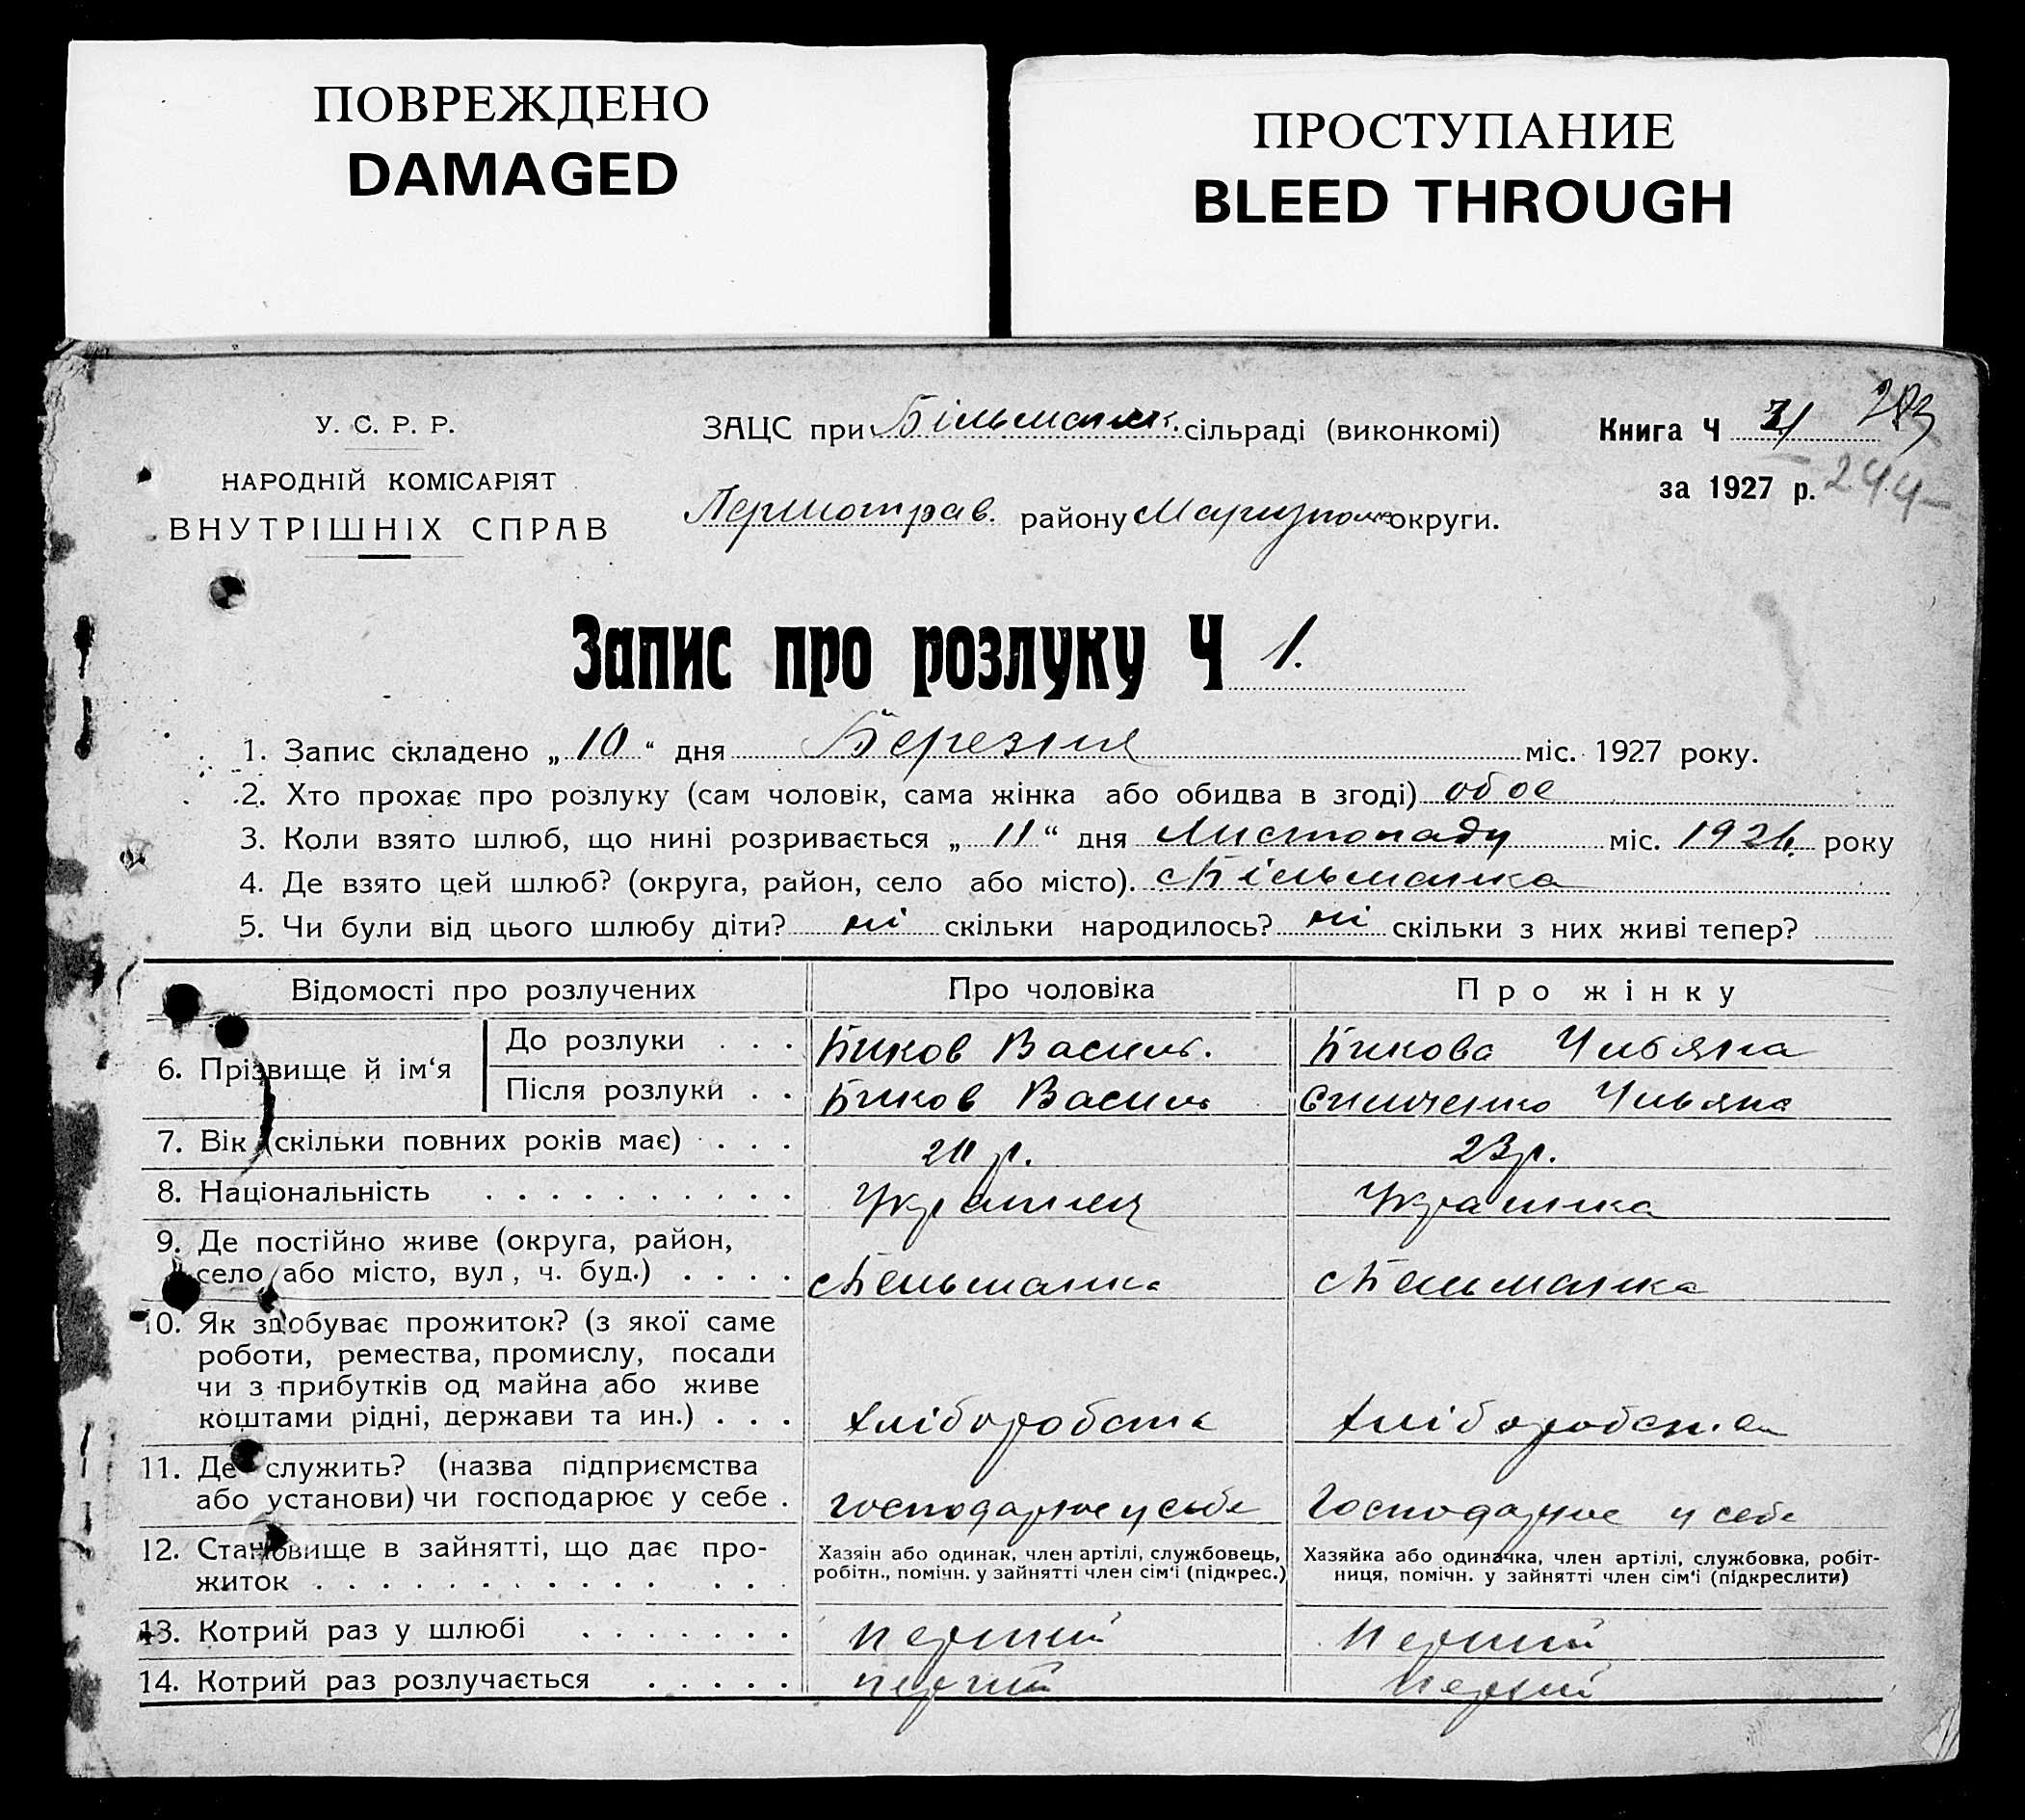 ПОВРЕЖДЕНО
DAMAGED
ПРОСТУПАНИЕ
BLEED THROUGH
У. С. Р. Р.
НАРОДНІЙ КОМІСАРІЯТ
ВНУТРІШНІХ СПРАВ
ЗАЦС при Більманськ. сільраді (виконкомі)
району Маріупол округи.
Книга Ч
за 1927 р. 244
Запис про розлуку Ч 1.
1. Запис складено „ 10 “ дня Березня міс. 1927 року.
2. Хто прохає про розлуку (сам чоловік, сама жінка або обидва в згоді) обоє
3. Коли взято шлюб, що нині розривається „ 11 “ дня Листопаду міс. 1926. року
4. Де взято цей шлюб? (округа, район, село або місто). с Більманка
5. Чи були від цього шлюбу діти? ні скільки народилось? ні скільки з них живі тепер?
Відомості про розлучених Про чоловіка Про жінку
6. Прізвище й ім‘я
До розлуки . . . Биков Василь. Бикова Ульяна
Після розлуки . . Биков Василь Ульяна
7. Вік (скільки повних років має) . . . 20 р. 23 р.
8. Національність . . . . . . . . . . Українец Українка
9. Де постійно живе (округа, район,
село або місто, вул, ч. буд.) . . . . с Бельманка с Бельманка
10. Як здобуває прожиток? (з якої саме
роботи, ремества, промислу, посади
чи з прибутків од майна або живе
коштами рідні, держави та ин.) . . . хліборобств
11. Де служить? (назва підприємства
або установи) чи господарює у себе . господарює у себе Господарює у себе
12. Становище в зайнятті, що дає про-
житок . . . . . . . . . . . . . . .
Хазяін або одинак, член артілі, службовець,
робітн., помічн. у зайнятті член сім‘і (підкрес.)
Хазяйка або одиначка, член артілі, службовка, робіт-
ниця, помічн. у зайнятті член сім‘і (підкреслити)
13. Котрий раз у шлюбі . . . . . . . перший перший
14. Котрий раз розлучається . . . . . перший перший